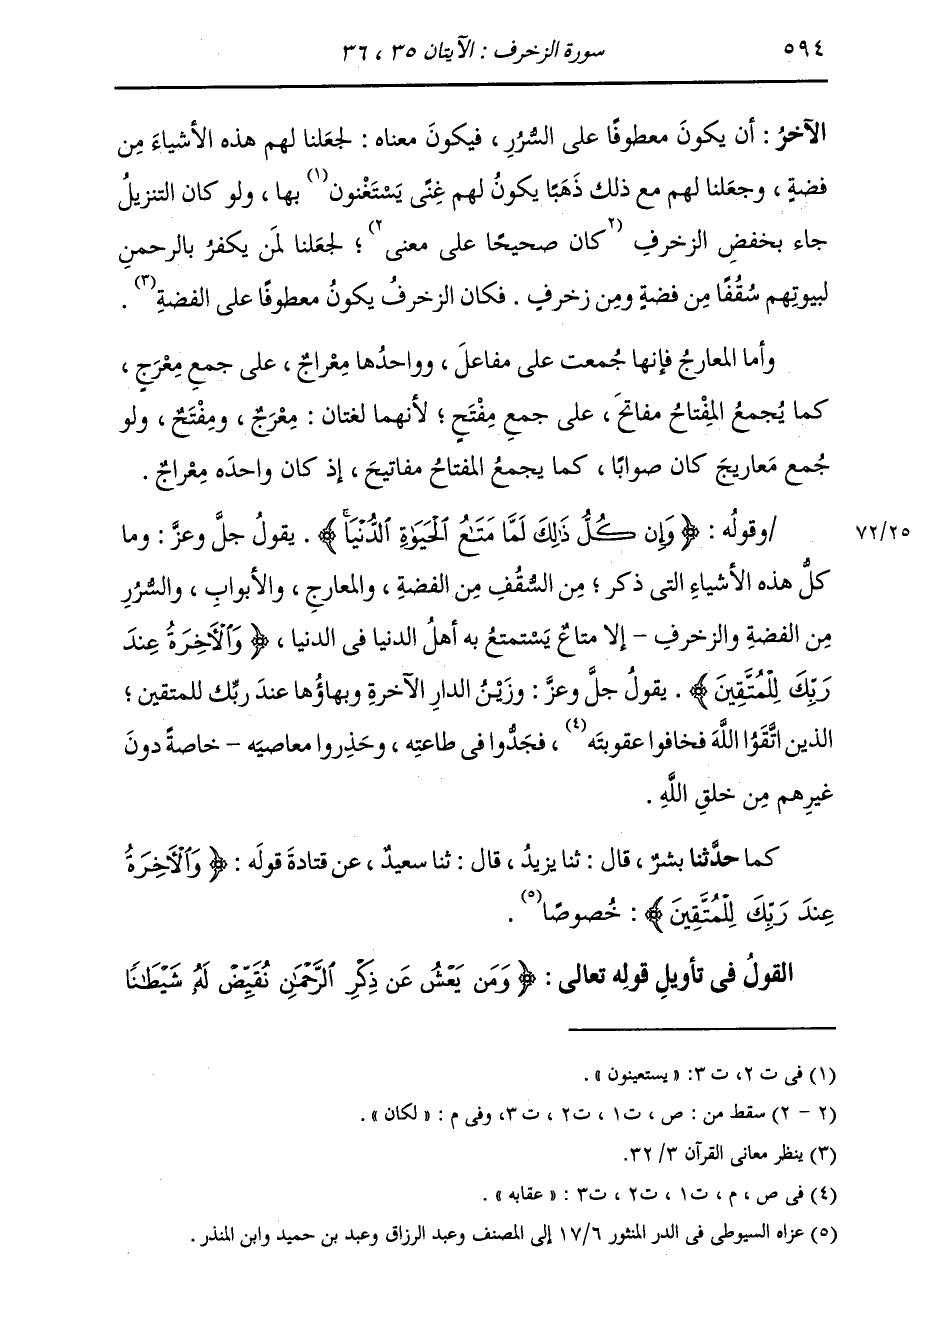 ٥٩٤ سورة الزخرف : الآيتان ٣٥ ، ٣٦
الآخرُ : أن يكونَ معطوفًا على السُّرُرِ ، فيكونَ معناه : لجعَلنا لهم هذه الأشياءَ مِن
فضةٍ ، وجعَلنا لهم مع ذلك ذَهَبًا يكونُ لهم غِنًى يَسْتَغْنون(١) بها ، ولو كان التنزيلُ
جاء بخفضِ الزخرفِ (٢كان صحيحًا على معنى٢) ؛ لجعَلنا لمَن يكفرُ بالرحمنِ
لبيوتِهم سُقُفًا مِن فضةٍ ومِن زخرفٍ . فكان الزخرفُ يكونُ معطوفًا على الفضةِ(٣) .
وأما المعارجُ فإنها جُمعت على مفاعلَ ، وواحدُها مِعْراجٌ ، على جمعِ مِعْرَجٍ ،
كما يُجمعُ المِفْتاحُ مفاتحَ ، على جمعِ مِفْتَحٍ ؛ لأنهما لغتان : مِعْرَجٌ ، ومِفْتَحٌ ، ولو
جُمع مَعاريجَ كان صوابًا ، كما يجمعُ المفتاحُ مفاتيحَ ، إذ كان واحدَه مِعْراجٌ .
/وقولُه : ﴿ وَإِن كُلُّ ذَٰلِكَ لَمَّا مَتَٰعُ الْحَيَوٰةِ الدُّنْيَاۚ ﴾ . يقولُ جلَّ وعزَّ : وما ٧٢/٢٥
كلُّ هذه الأشياءِ التى ذكر ؛ مِن السُّقُفِ مِن الفضةِ ، والمعارجِ ، والأبوابِ ، والسُّرُرِ
مِن الفضةِ والزخرفِ – إلا متاعٌ يَسْتمتعُ به أهلُ الدنيا فى الدنيا ، ﴿ وَالْآخِرَةُ عِندَ
رَبِّكَ لِلْمُتَّقِينَ ﴾ . يقولُ جلَّ وعزَّ : وزَيْنُ الدارِ الآخرةِ وبهاؤُها عندَ ربِّك للمتقين ؛
الذين اتَّقَوُا اللَّهَ فخافوا عقوبتَه(٤) ، فجَدُّوا فى طاعتِه ، وحَذِروا معاصيَه – خاصةً دونَ
غيرِهم مِن خلقِ اللَّهِ .
كما حدَّثنا بشرٌ ، قال : ثنا يزيدُ ، قال : ثنا سعيدٌ ، عن قتادةَ قولَه : ﴿ وَالْآخِرَةُ
عِندَ رَبِّكَ لِلْمُتَّقِينَ ﴾ : خُصوصًا(٥) .
القولُ فى تأويلِ قولِه تعالى : ﴿ وَمَن يَعْشُ عَن ذِكْرِ الرَّحْمَٰنِ نُقَيِّضْ لَهُۥ شَيْطَٰنًا
(١) فى ت ٢، ت ٣: « يستعينون » .
(٢ – ٢) سقط من : ص ، ت١ ، ت٢ ، ت٣، وفى م : « لكان » .
(٣) ينظر معانى القرآن ٣/ ٣٢.
(٤) فى ص ، م ، ت١ ، ت٢ ، ت٣ : « عقابه » .
(٥) عزاه السيوطى فى الدر المنثور ١٧/٦ إلى المصنف وعبد الرزاق وعبد بن حميد وابن المنذر .